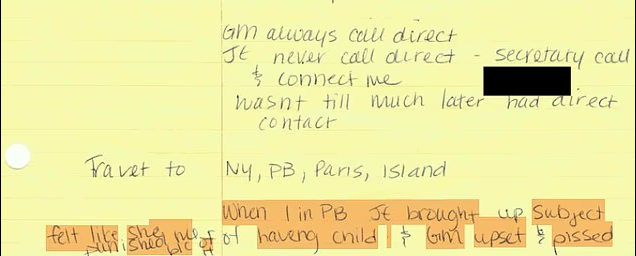 GM always call direct
JE never call direct - secretary call
& connect me
wasnt till much later had direct
contact
Travel to NY, PB, Paris, Island
When I in PB JE brought up subject
felt like she of having child & GM upset & pissed
punished